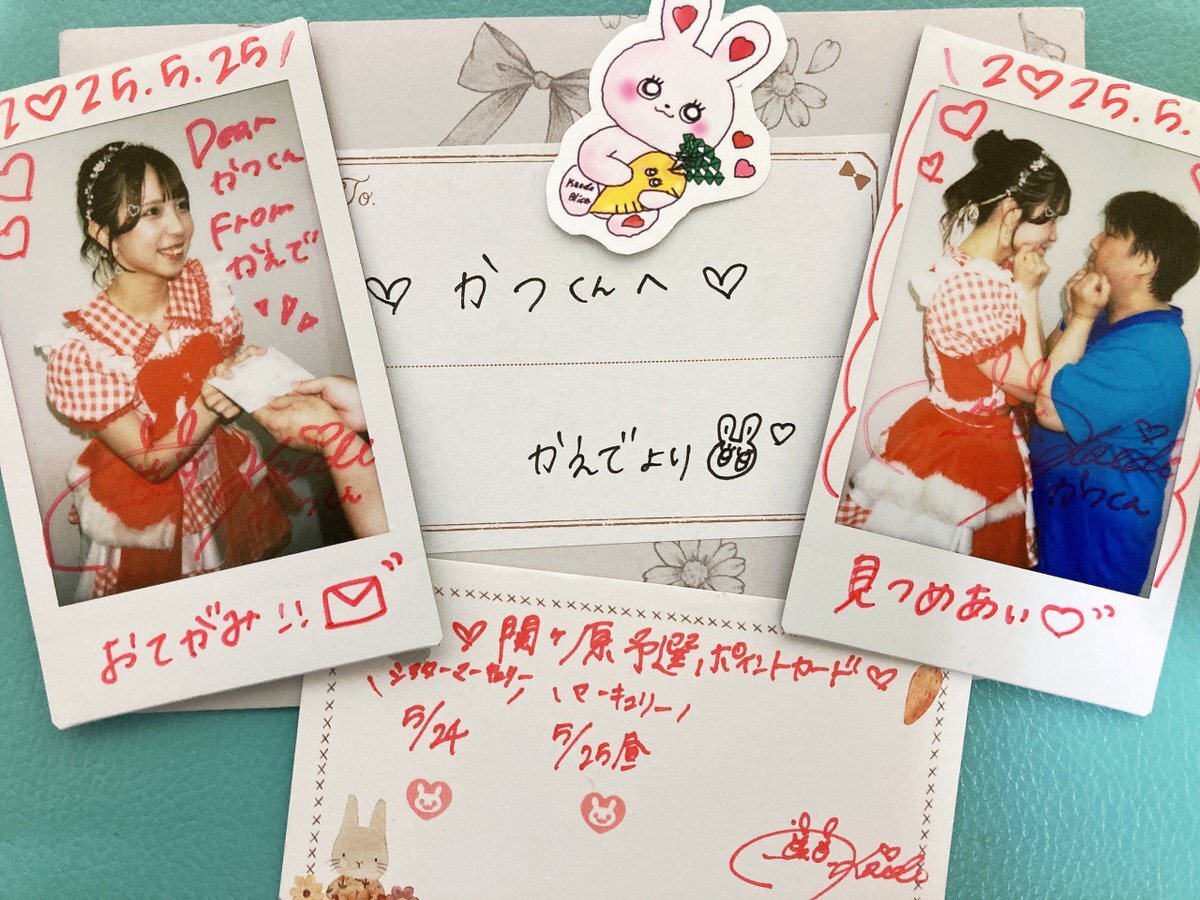 2♡25.5.25
Dear
かつくん
From
かえで
かつくん
おてがみ!!
To.
♡ かつくんへ ♡
かえでより
Kaede
Alice
2♡25.5.
かつくん
見つめあい♡
♡関ヶ原予選ポイントカード♡
5/24
マーキュリー
5/25昼